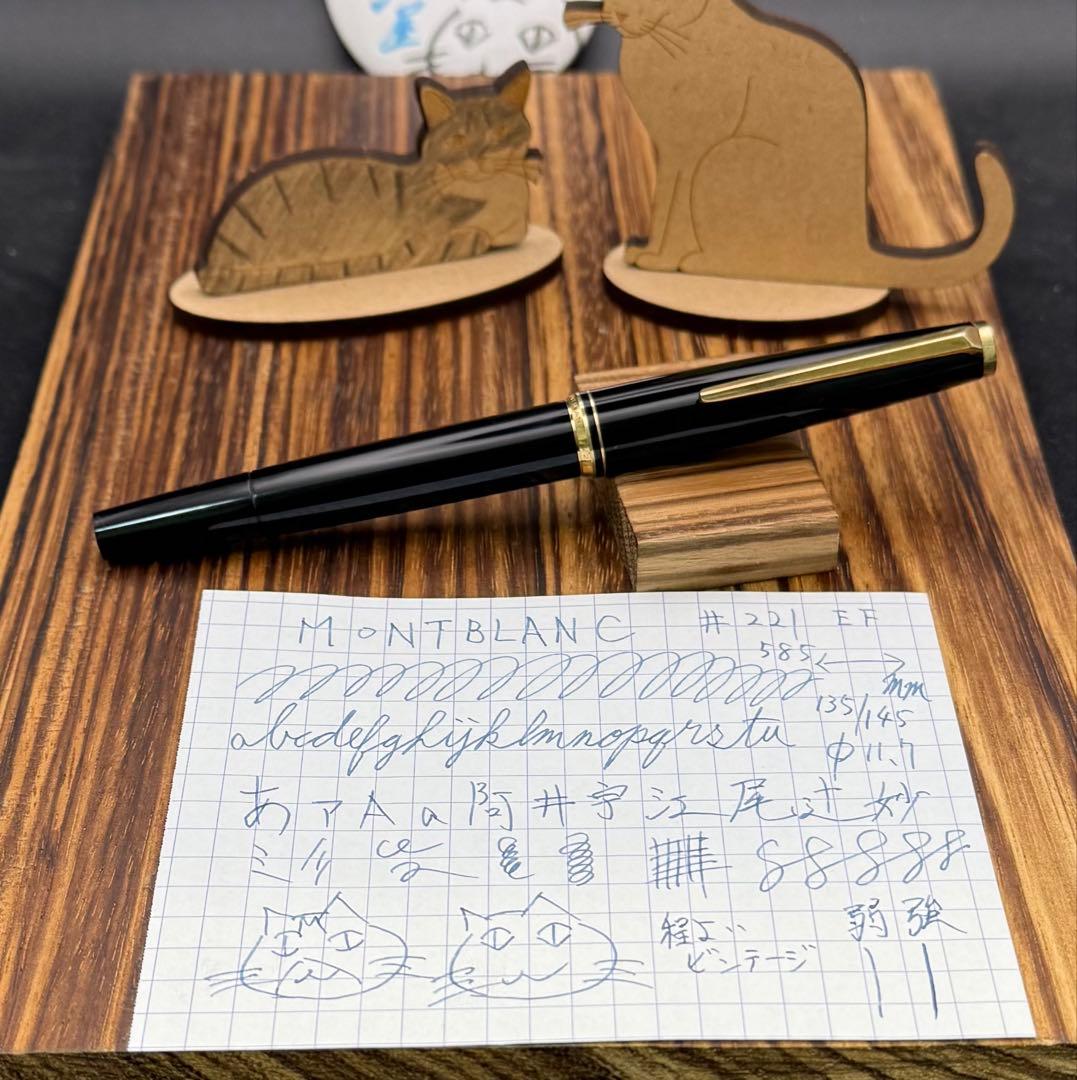 MONTBLANC #221 EF
585
mm
135/145
φ11.7
abcdefghijklmnopqrstu
あァAa阿井宇江尾辻妙
弱 強
程よい
ビンテージ